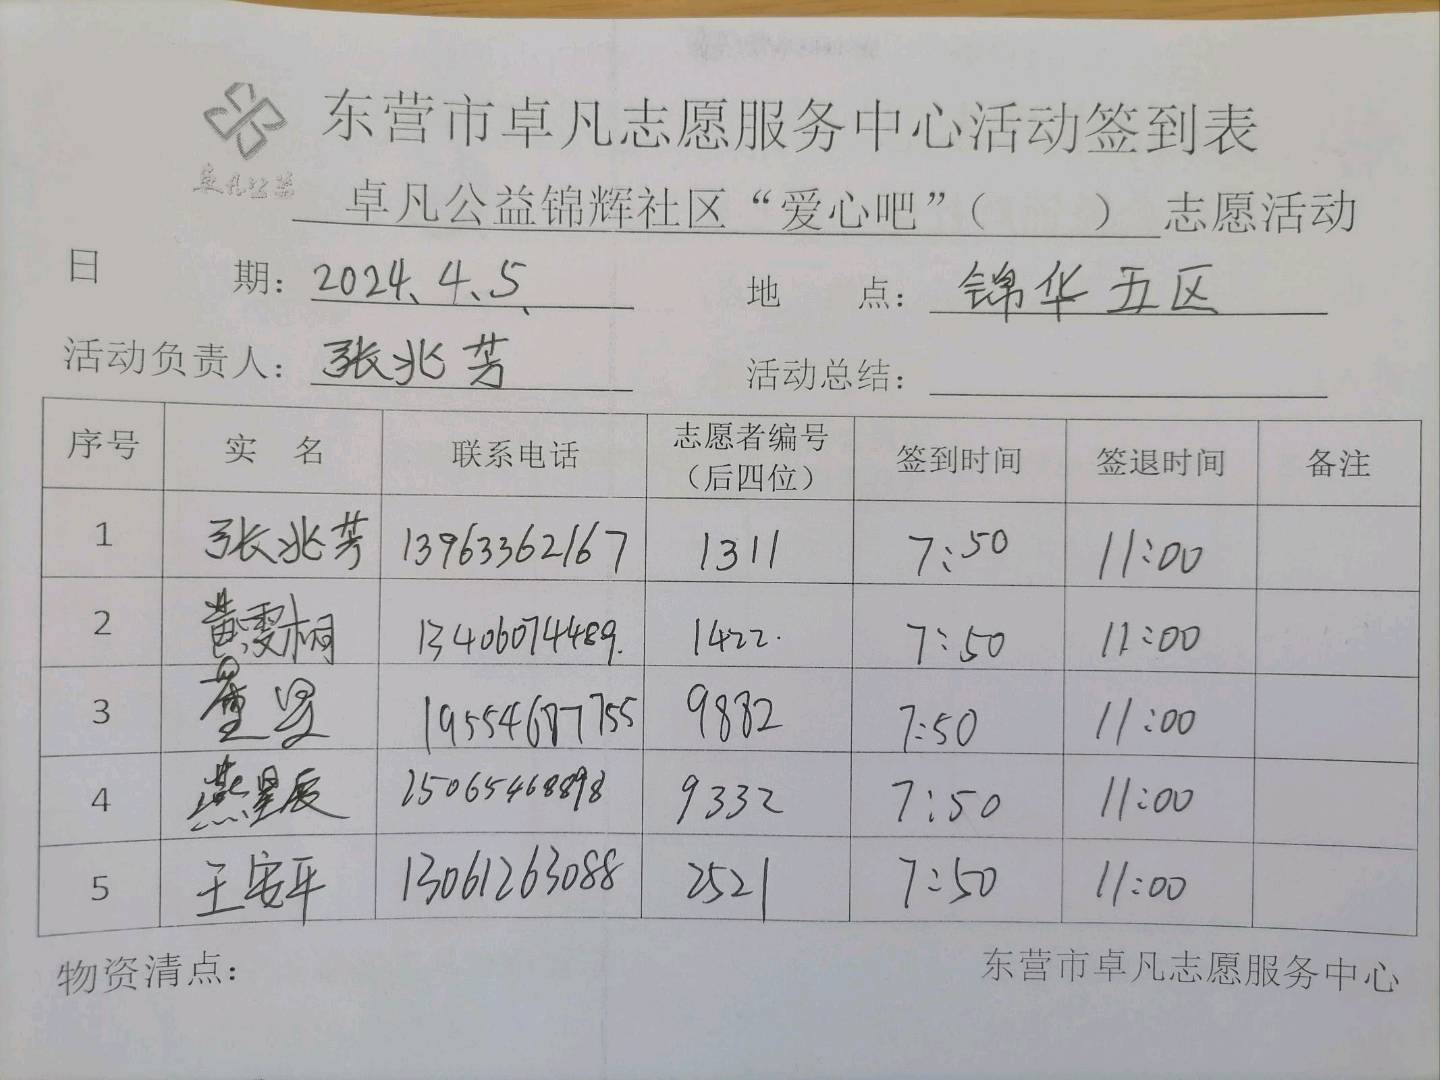 东营市卓凡志愿服务中心活动签到表
卓凡公益
卓凡公益锦辉社区“爱心吧”（ ） 志愿活动
日 期：2024.4.5. 地 点：锦华五区
活动负责人：张兆芳 活动总结：
序号 实 名 联系电话 志愿者编号（后四位） 签到时间 签退时间 备注
1 张兆芳 13963362167 1311 7:50 11:00
2 黄雯桐 13406074489. 1422. 7:50 11:00
3 19554687755 9882 7:50 11:00
4 燕星辰 15065468898 9332 7:50 11:00
5 王安平 13061263088 2521 7:50 11:00
物资清点： 东营市卓凡志愿服务中心